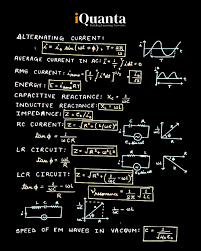 iQuanta
ALTERNATING CURRENT:
i = i₀ sin(ωt + φ), T = 2π/ω
AVERAGE CURRENT IN AC: ī = 1/T ∫ i dt = 0
RMS CURRENT:
ENERGY: E = i²rms RT
CAPACITIVE REACTANCE: Xc = 1/ωc
INDUCTIVE REACTANCE: XL = ωL
IMPEDANCE: Z = e₀/i₀
RC CURRENT: Z = √R²+(1/ωc)²
tan φ = 1/ωCR
LR CIRCUIT: Z = √R²+ω²L²
tan φ = ωL/R
LCR CIRCUIT: Z = √R²+(1/ωc − ωL)²
tan φ = (1/ωc − ωL)/R
νresonance = 1/2π √1/LC
SPEED OF EM WAVES IN VACUUM: c = 1/√μ₀ε₀